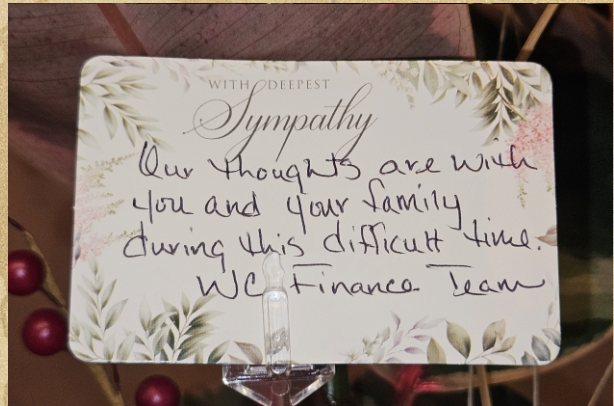 WITH DEEPEST
Sympathy
Our thoughts are with
you and your family
during this difficult time.
WC Finance Team